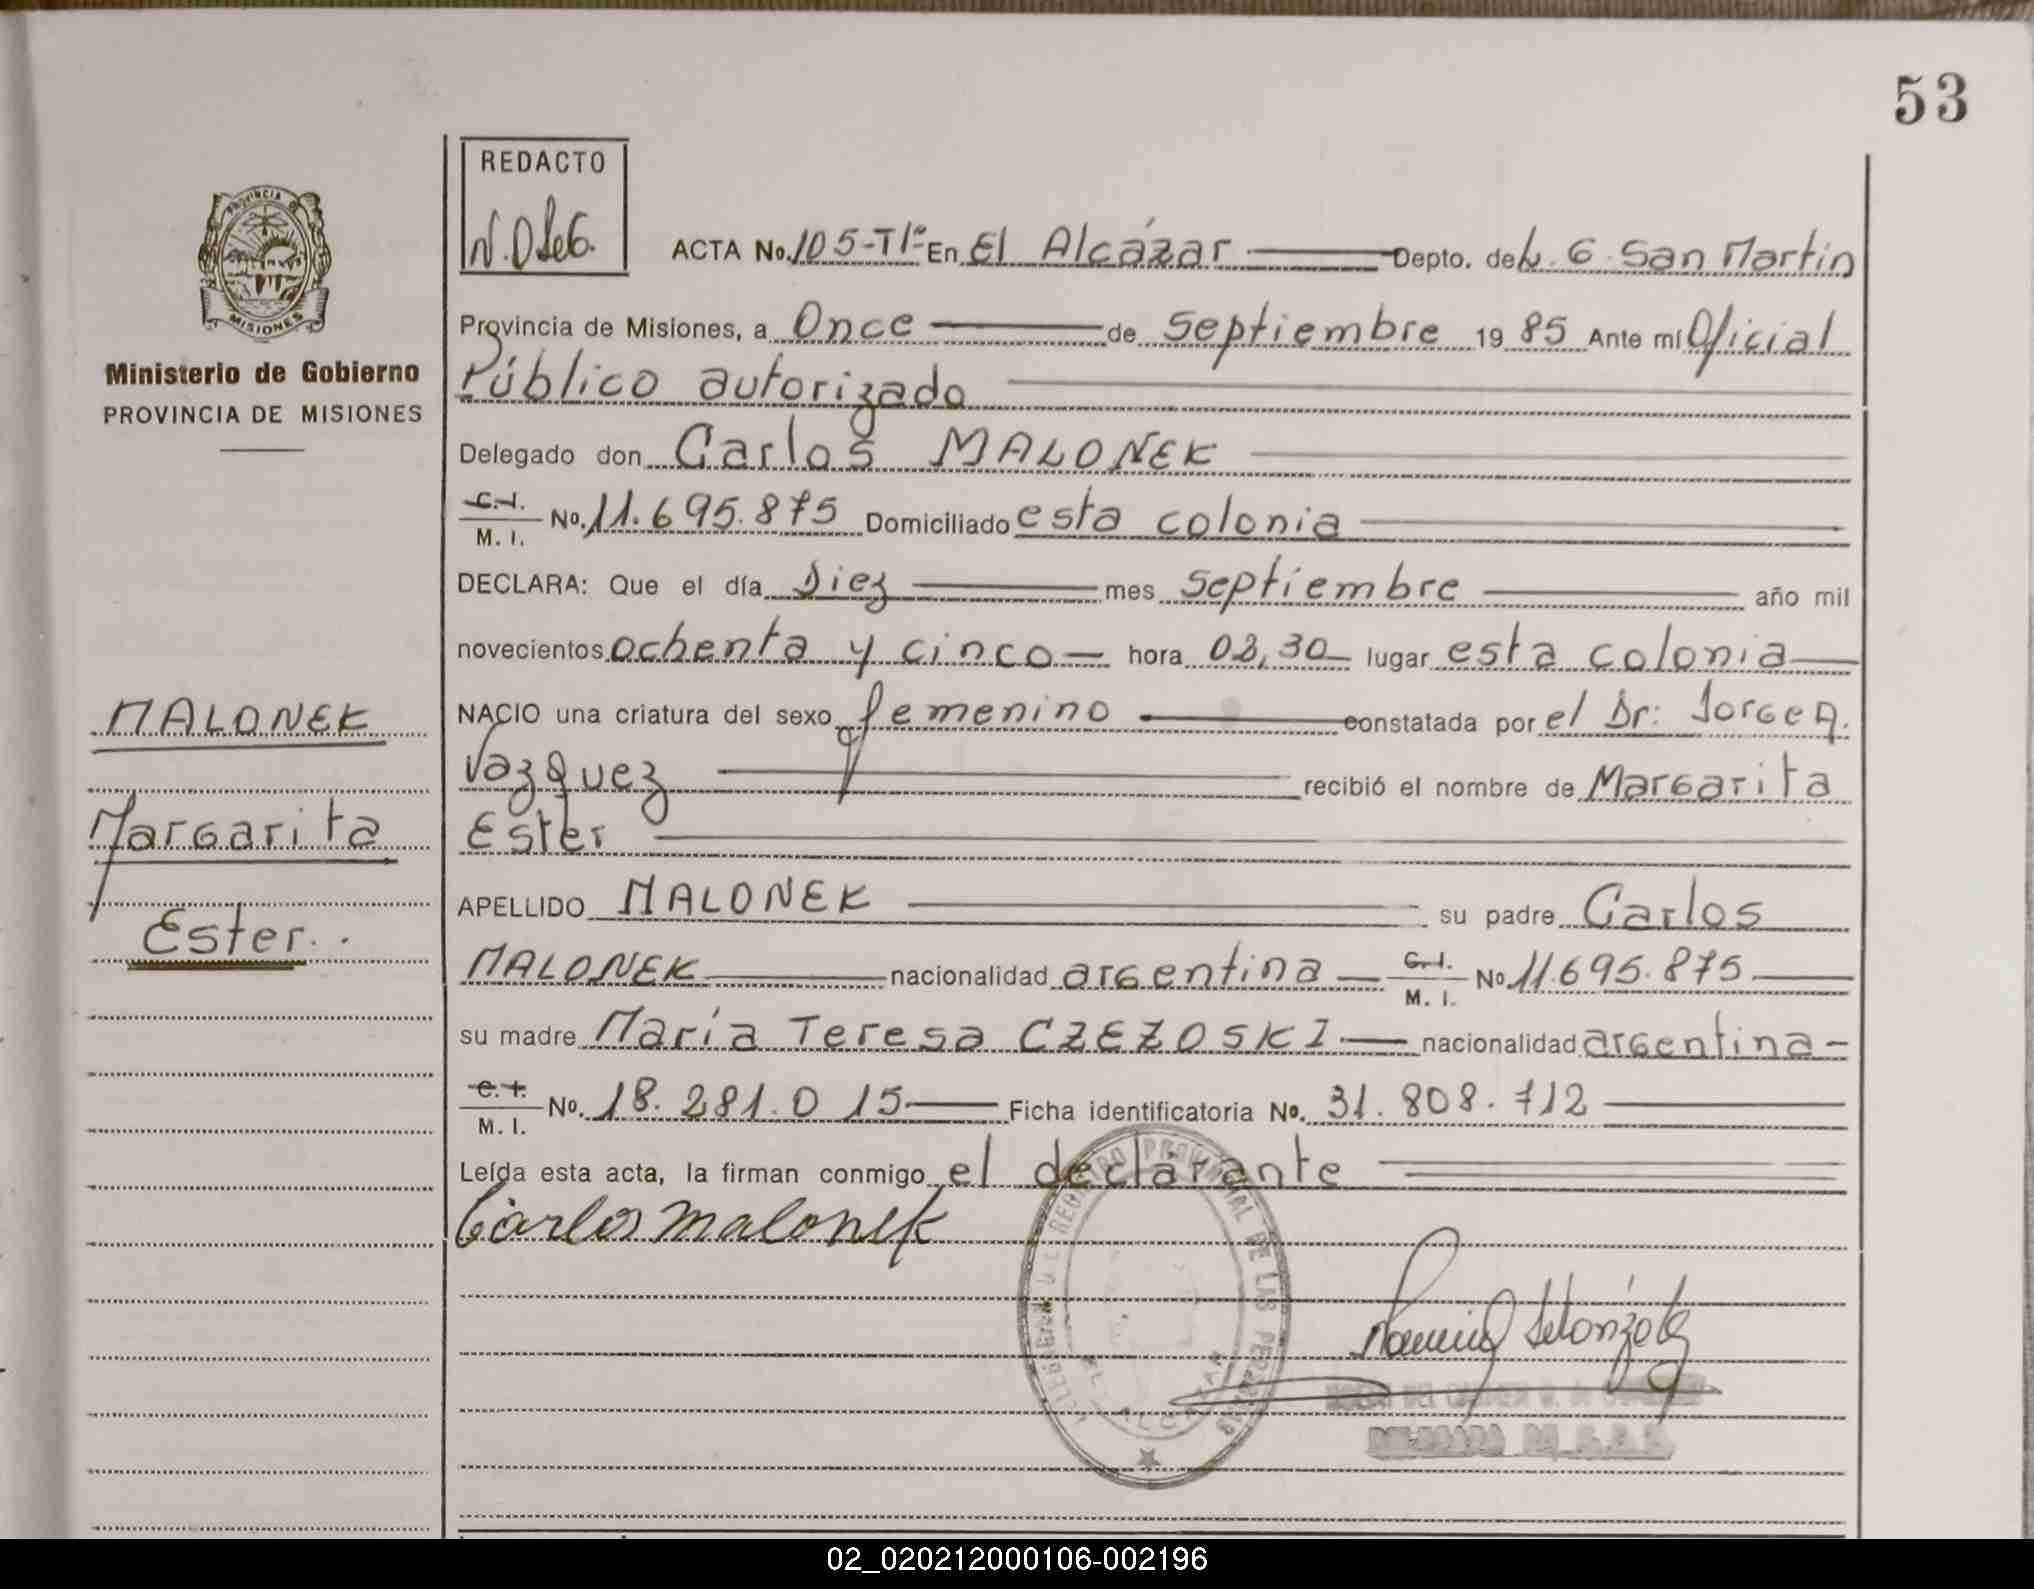 53
REDACTO
ACTA No. 105-T1º En El Alcázar Depto. de L. G. San Martin
PROVINCIA DE
MISIONES
Provincia de Misiones, a Once de Septiembre 19 85 Ante mí Oficial
Ministerio de Gobierno
Público autorizado
PROVINCIA DE MISIONES
Delegado don Carlos MALONEK
C.I.
M. I. No. 11.695.875 Domiciliado esta colonia
DECLARA: Que el día Diez mes Septiembre año mil
novecientos ochenta y cinco hora 02,30 lugar esta colonia
MALONEK
NACIO una criatura del sexo femenino constatada por el Dr: Jorge A.
Vazquez recibió el nombre de Margarita
Margarita
Ester
APELLIDO MALONEK su padre Carlos
Ester..
MALONEK nacionalidad argentina C.I. M. I. No 11.695.875
su madre María Teresa CZEZOSKI nacionalidad argentina
C.I.
M. I. No. 18.281.015 Ficha identificatoria No. 31.808.712
Leída esta acta, la firman conmigo el declarante
Carlos Malonek
REGISTRO PROVINCIAL DE LAS PERSONAS
EL ALCAZAR
02_020212000106-002196